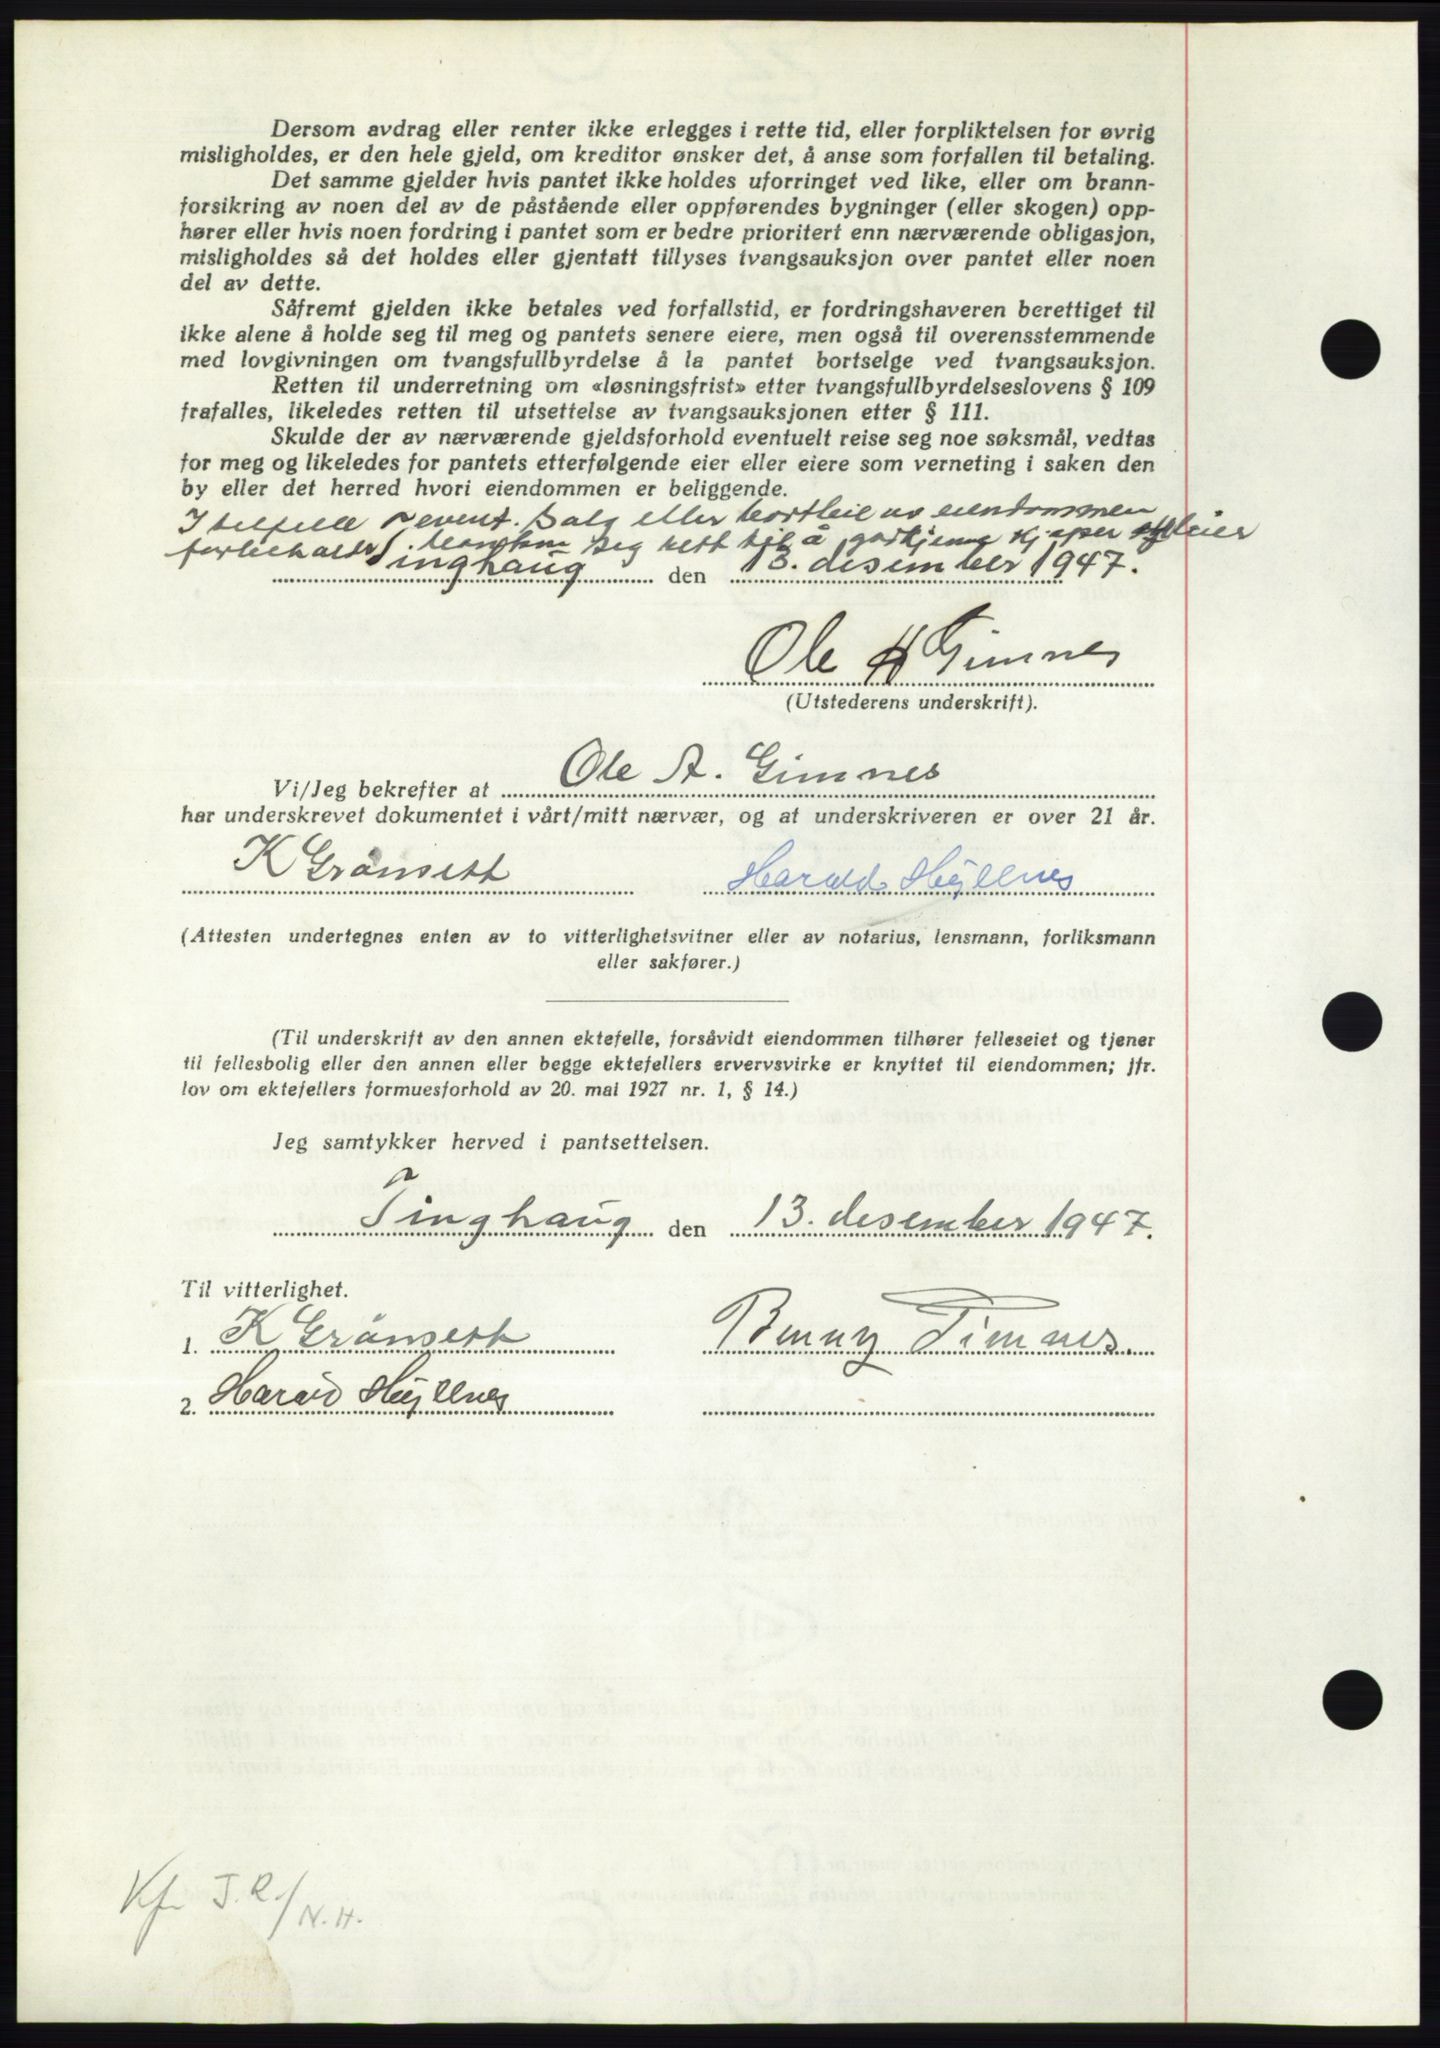 Dersom avdrag eller renter ikke erlegges i rette tid, eller forpliktelsen for øvrig
misligholdes, er den hele gjeld, om kreditor ønsker det, å anse som forfallen til betaling.
Det samme gjelder hvis pantet ikke holdes uforringet ved like, eller om brann-
forsikring av noen del av de påstående eller oppførendes bygninger (eller skogen) opp-
hører eller hvis noen fordring i pantet som er bedre prioritert enn nærværende obligasjon,
misligholdes så det holdes eller gjentatt tillyses tvangsauksjon over pantet eller noen
del av dette.
Såfremt gjelden ikke betales ved forfallstid, er fordringshaveren berettiget til
ikke alene å holde seg til meg og pantets senere eiere, men også til overensstemmende
med lovgivningen om tvangsfullbyrdelse å la pantet bortselge ved tvangsauksjon.
Retten til underretning om «løsningsfrist» etter tvangsfullbyrdelseslovens § 109
frafalles, likeledes retten til utsettelse av tvangsauksjonen etter § 111.
Skulde der av nærværende gjeldsforhold eventuelt reise seg noe søksmål, vedtas
for meg og likeledes for pantets etterfølgende eier eller eiere som verneting i saken den
by eller det herred hvori eiendommen er beliggende.
I tilfelle event. salg eller bortleie av eiendommen
forbeholder banken seg rett til å godkjenne kjøper leier
Tinghaug den 13. desember 1947.
Ole A Gimnes
(Utstederens underskrift).
Vi/Jeg bekrefter at Ole A. Gimnes
har underskrevet dokumentet i vårt/mitt nærvær, og at underskriveren er over 21 år.
K Grånsett Harald Høyllnes
(Attesten undertegnes enten av to vitterlighetsvitner eller av notarius, lensmann, forliksmann
eller sakfører.)
(Til underskrift av den annen ektefelle, forsåvidt eiendommen tilhører felleseiet og tjener
til fellesbolig eller den annen eller begge ektefellers ervervsvirke er knyttet til eiendommen; jfr.
lov om ektefellers formuesforhold av 20. mai 1927 nr. 1, § 14.)
Jeg samtykker herved i pantsettelsen.
Tinghaug den 13. desember 1947.
Til vitterlighet.
1. K Grånsett Benny Gimnes.
2. Harald Høyllnes
Kfr J.R./N.H.